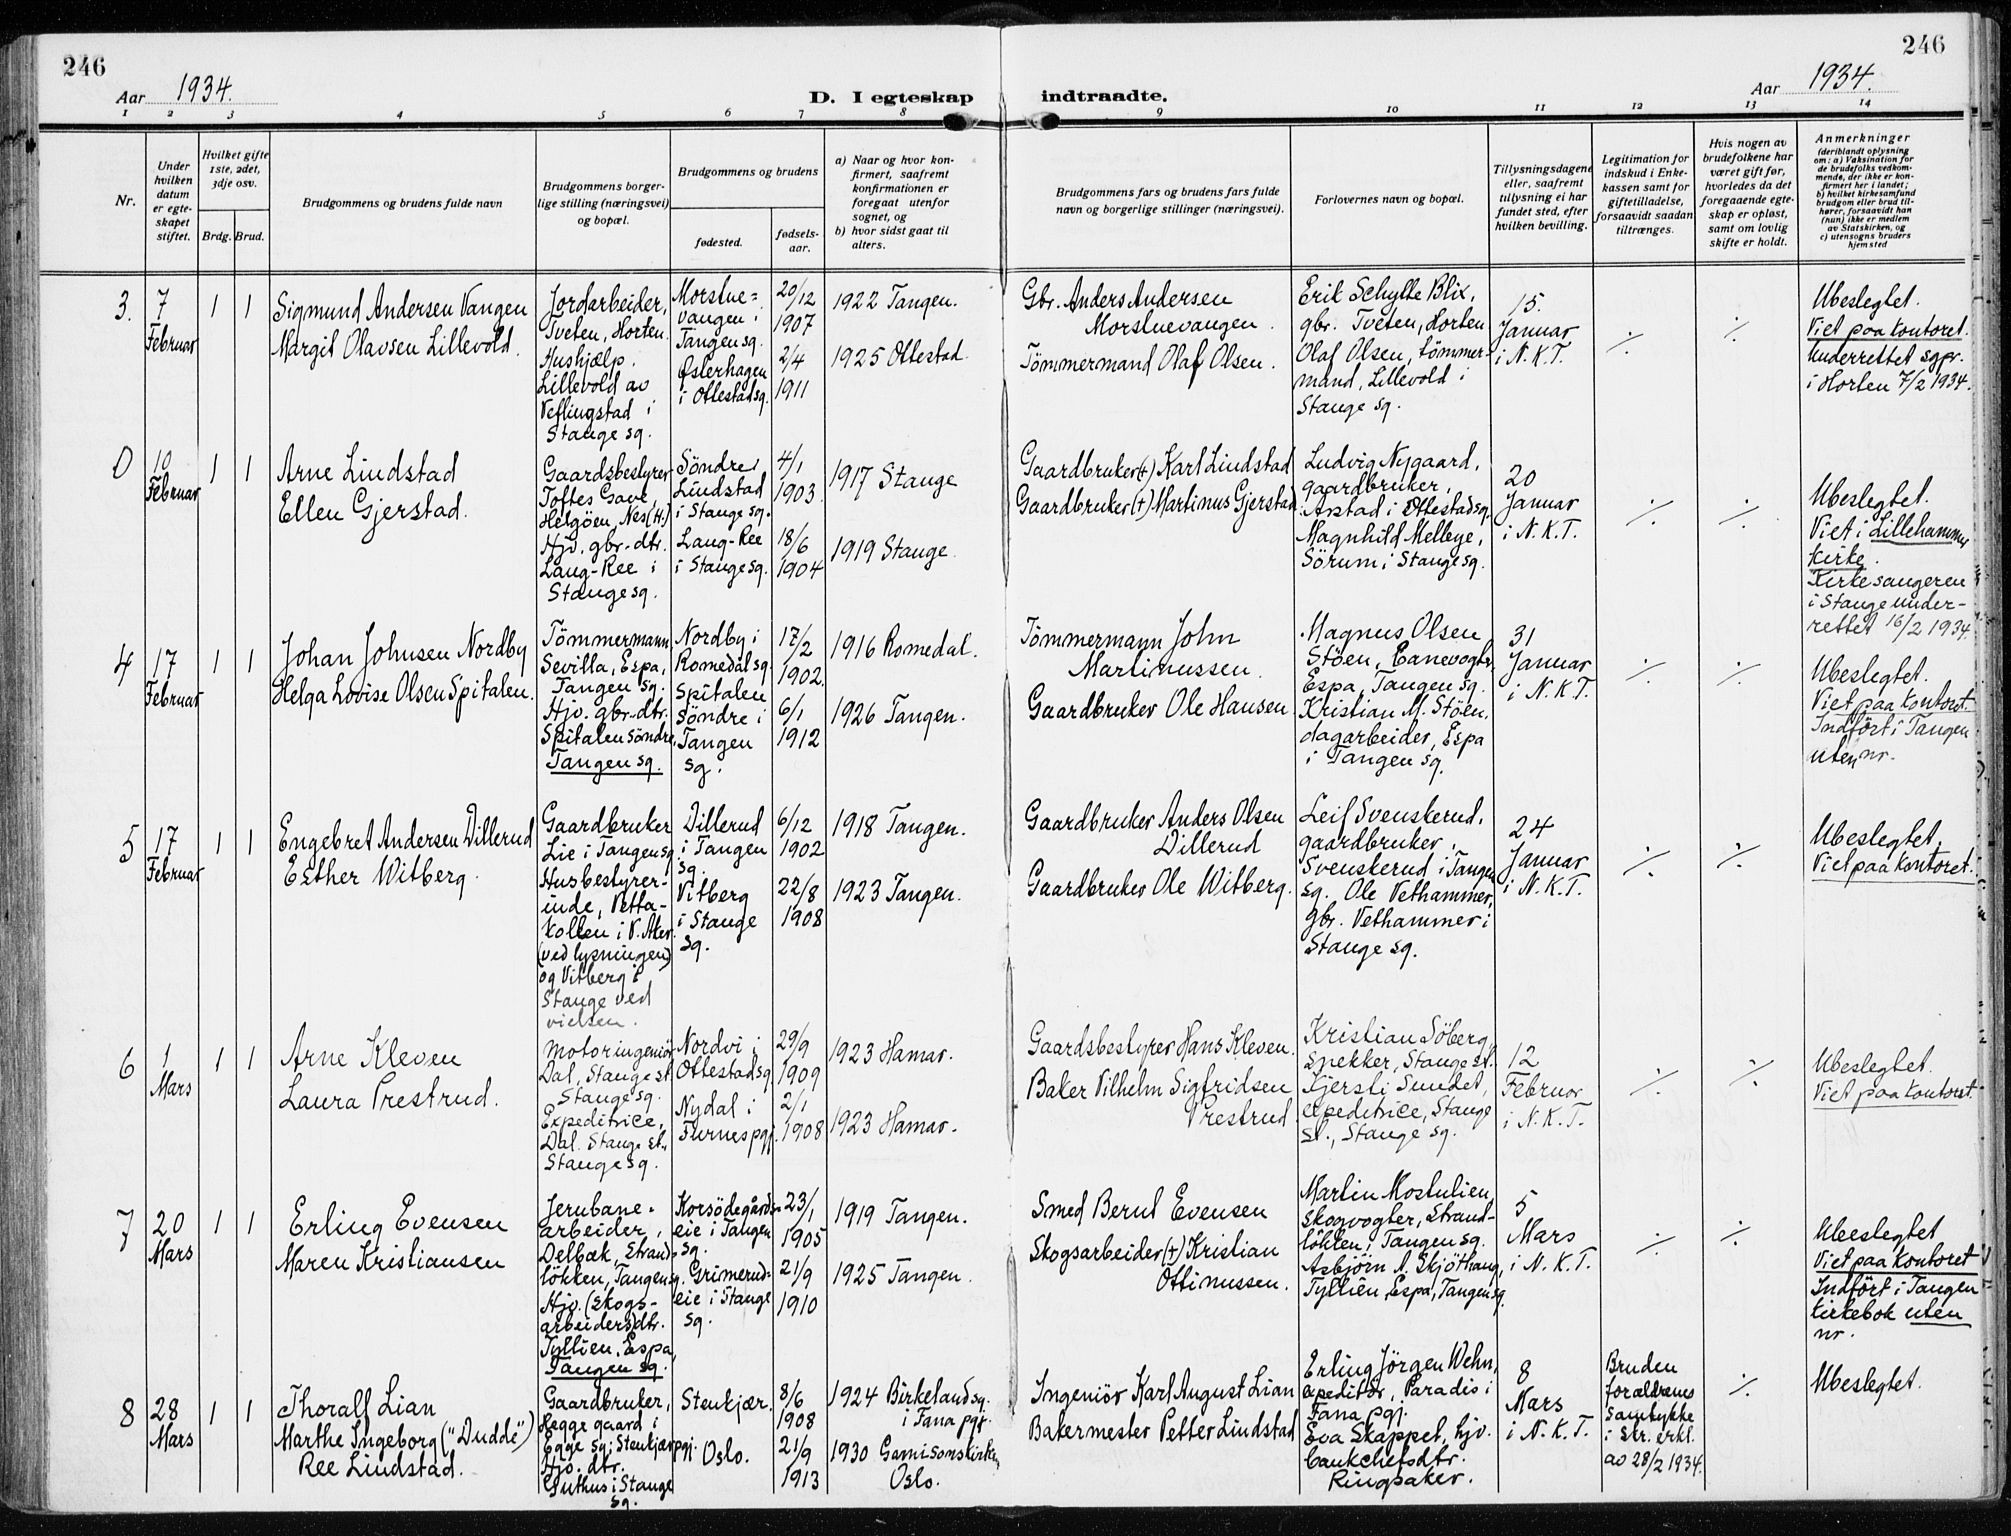 246
Aar 1934.
D. I egteskap indtraadte.
Aar 1934.
246
1 2 3 4 5 6 7 8 9 10 11 12 13 14
Nr.
Under
hvilken
datum
er egte-
skapet
stiftet.
Hvilket gifte
1ste, 2det,
3dje osv.
Brdg. Brud.
Brudgommens og brudens fulde navn
Brudgommens borger-
lige stilling (næringsvei)
og bopæl.
Brudgommens og brudens
fødested.
fødsels-
aar.
a) Naar og hvor kon-
firmert, saafremt
konfirmationen er
foregaat utenfor
sognet, og
b) hvor sidst gaat til
alters.
Brudgommens fars og brudens fars fulde
navn og borgerlige stillinger (næringsvei).
Forlovernes navn og bopæl.
Tillysningsdagene
eller, saafremt
tillysning ei har
fundet sted, efter
hvilken bevilling.
Legitimation for
indskud i Enke-
kassen samt for
giftetilladelse,
forsaavidt saadan
tiltrænges.
Hvis nogen av
brudefolkene har
været gift før,
hvorledes da det
foregaaende egte-
skap er opløst,
samt om lovlig
skifte er holdt.
Anmerkninger
(deriblandt oplysning
om: a) Vaksination for
de brudefolks vedkom-
mende, der ikke er kon-
firmert her i landet;
b) hvilket kirkesamfund
brudgom eller brud til-
hører, forsaavidt han
(hun) ikke er medlem
av Statskirken, og
c) utensogns bruders
hjemsted
3.
7
Februar
1 1
Sigmund Andersen Vangen
Margit Olavsen Lillevold.
Jordarbeider,
Tveten, Horten.
Hushjælp.
Lillevold av
Veflingstad i
Stange sg.
Morstue=
vangen i
Tangen sg.
Østerhagen
i Ottestad sg.
20/12
1907
2/4
1911
1922 Tangen.
1925 Ottestad.
Gbr. Anders Andersen
Morstuevangen.
Tömmermand Olaf Olsen.
Erik Schylte Blix,
gbr. Tveten, Horten
Olaf Olsen, tömmer-
mand, Lillevold i
Stange sg.
15.
Januar
i N.K.T.
./.
./.
Ubeslegtet.
Viet paa kontoret.
Underrettet sgpr.
i Horten 7/2 1934.
0
10
Februar
1 1
Arne Lindstad
Ellen Gjerstad.
Gaardsbestyrer
Toftes Gave,
Helgöen, Nes (H.)
Hjv. gbr.-dtr.
Laug-Ree i
Stange sg.
Söndre
Lindstad
i Stange sg.
Laug-Ree
i Stange sg.
4/1
1903.
18/6
1904
1917 Stange
1919 Stange.
Gaardbruker (+) Karl Lindstad
Gaardbruker (+) Martinus Gjerstad
Ludvig Nygaard,
gaardbruker,
Arstad i Ottestad sg.
Magnhild Melbye,
Sörum i Stange sg.
20
Januar
i N.K.T.
./.
./.
Ubeslegtet.
Viet i Lillehammer
kirke.
Kirkesangeren
i Stange under-
rettet 16/2 1934.
4
17
Februar
1 1
Johan Johnsen Nordby
Helga Lovise Olsen Spitalen.
Tömmermann
Sevilla, Espa,
Tangen sg.
Hjv. gbr.-dtr.
Spitalen söndre,
Tangen sg.
Nordby i
Romedal sg.
Spitalen
söndre i
Tangen
sg.
17/2
1902.
6/1
1912
1916 Romedal.
1926 Tangen.
Tömmermann John
Martinussen.
Gaardbruker Ole Hansen
Magnus Olsen
Stöen, banevogter,
Espa, Tangen sg.
Kristian M. Stöen,
dagarbeider, Espa
i Tangen sg.
31
Januar
i N.K.T.
./.
./.
Ubeslegtet.
Viet paa kontoret.
Indfört i Tangen
uten nr.
5
17
Februar
1 1
Engebret Andersen Dillerud
Esther Witberg.
Gaardbruker
Lie i Tangen sg.
Husbestyrer-
inde, Vetta-
kollen i V. Aker
(ved lysningen)
og Vitberg i
Stange ved
vielsen.
Dillerud
i Tangen
sg.
Vitberg
i Stange
sg.
6/12
1902
22/8
1908
1918 Tangen.
1923 Tangen.
Gaardbruker Anders Olsen
Dillerud
Gaardbruker Ole Witberg.
Leif Svenskerud,
gaardbruker,
Svenskerud i Tangen
sg. Ole Vethammer,
gbr. Vethammer i
Stange sg.
24
Januar
i N.K.T.
./.
./.
Ubeslegtet.
Viet paa kontoret.
6
1
Mars
1 1
Arne Kleven
Laura Prestrud.
Motoringeniör
Dal, Stange st.
Stange sg.
Expeditrice,
Dal. Stange st.,
Stange sg.
Nordvi i
Ottestad sg.
Nydal i
Furnes pgj.
29/9
1909
2/1
1908
1923 Hamar.
1923 Hamar.
Gaardsbestyrer Hans Kleven.
Baker Vilhelm Sigfridsen
Prestrud
Kristian Söberg,
snekker, Stange st.
Kjersti Sundet,
expeditrice, Stange
st., Stange sg.
12
Februar
i N.K.T.
./.
./.
Ubeslegtet.
Viet paa kontoret.
7
20
Mars
1 1
Erling Evensen
Maren Kristiansen
Jernbane=
arbeider,
Delbak, Strand-
lökken, Tangen sg.
Hjv. (skogs-
arbeiders)dtr.
Tyllien, Espa,
Tangen sg.
Korsödegårds-
eie i Tangen
sg.
Grimerud-
eie i Stange
sg.
23/1
1905
21/9
1910
1919 Tangen.
1925 Tangen.
Smed Bernt Evensen
Skogsarbeider (+) Kristian
Ottinussen.
Martin Mostulien,
skogvogter, Strand-
lökken, Tangen sg.
Asbjörn A. Skjöthaug,
Tyllien, Espa, Tangen sg.
5
Mars
i N.K.T.
./.
./.
Ubeslegtet
Viet paa kontoret
Indfört i Tangen
kirkebok uten
nr.
8
28
Mars
1 1
Thoralf Lian
Marthe Ingeborg ("Duddé")
Ree Lindstad.
Gaardbruker,
Hegge gaard i
Egge sg. Stenkjær pgj.
Hjv. dtr.
Guthus i Stange
sg.
Stenkjær.
Oslo.
8/6
1908
21/9
1913
1924 Birkeland sg.
i Fana pgj.
1930 Garnisonskirken
Oslo.
Ingeniör Karl August Lian
Bakermester Petter Lindstad
Erling Jörgen Wehn,
expeditör, Paradis i
Fana pgj.
Eva Skappel, hjv.
bankchefsdtr.
Ringsaker.
8
Mars
i N.K.T.
Bruden
forældrenes
samtykke
i skr. erkl.
av 28/2 1934.
./.
Ubeslegtet.